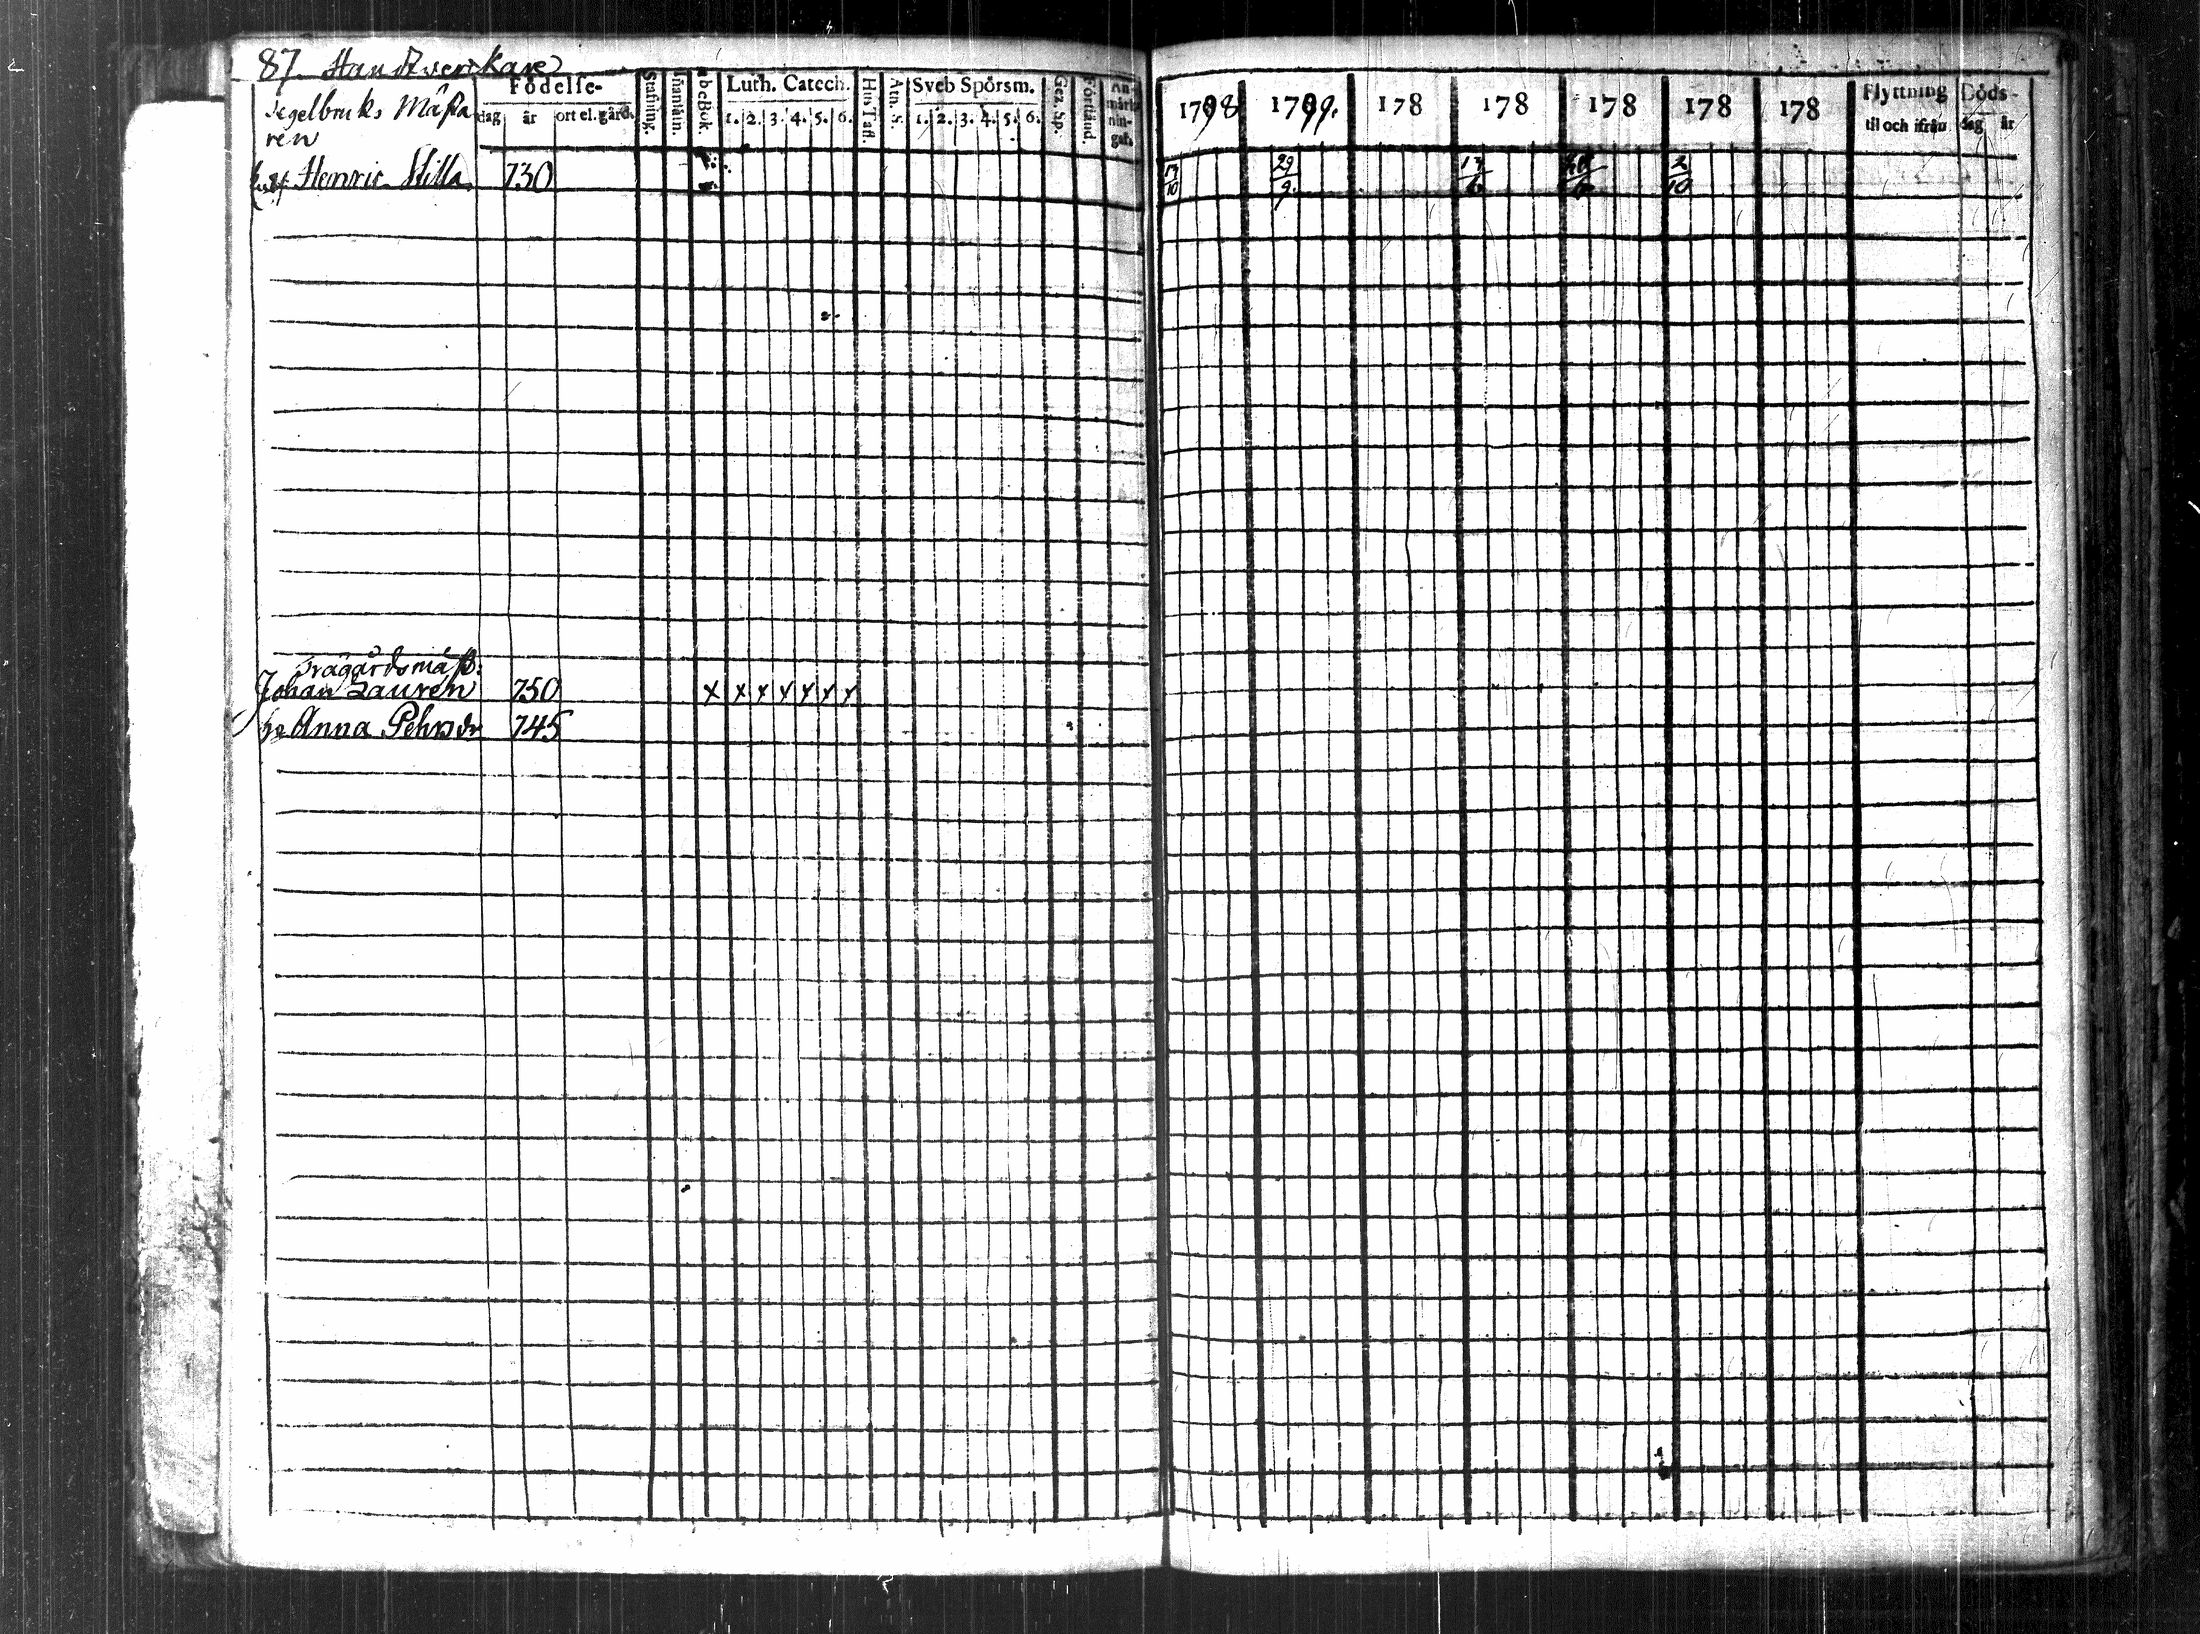 87. Handtverkare
Tegelbruks Mästa
ren
Födelse-
dag år ort el. gård.
Stafning.
Innanläsn.
abcBok.
Luth. Catech.
1. 2. 3. 4. 5. 6.
Hus Tafl.
Ath. S.
Sveb Spörsm.
1. 2. 3. 4. 5. 6.
Gez. Sp.
Förstånd.
An-
märk-
nin-
gar.
1798 1799. 178 178 178 178 178
Flyttning
til och ifrån
Döds-
dag år
Henric Stilla 730 19/10 29/9. 17/6 2/10
Trägårdsmäst:
Johan Lauren 750 x x x x x x x
h. Anna Pehrsdr 745